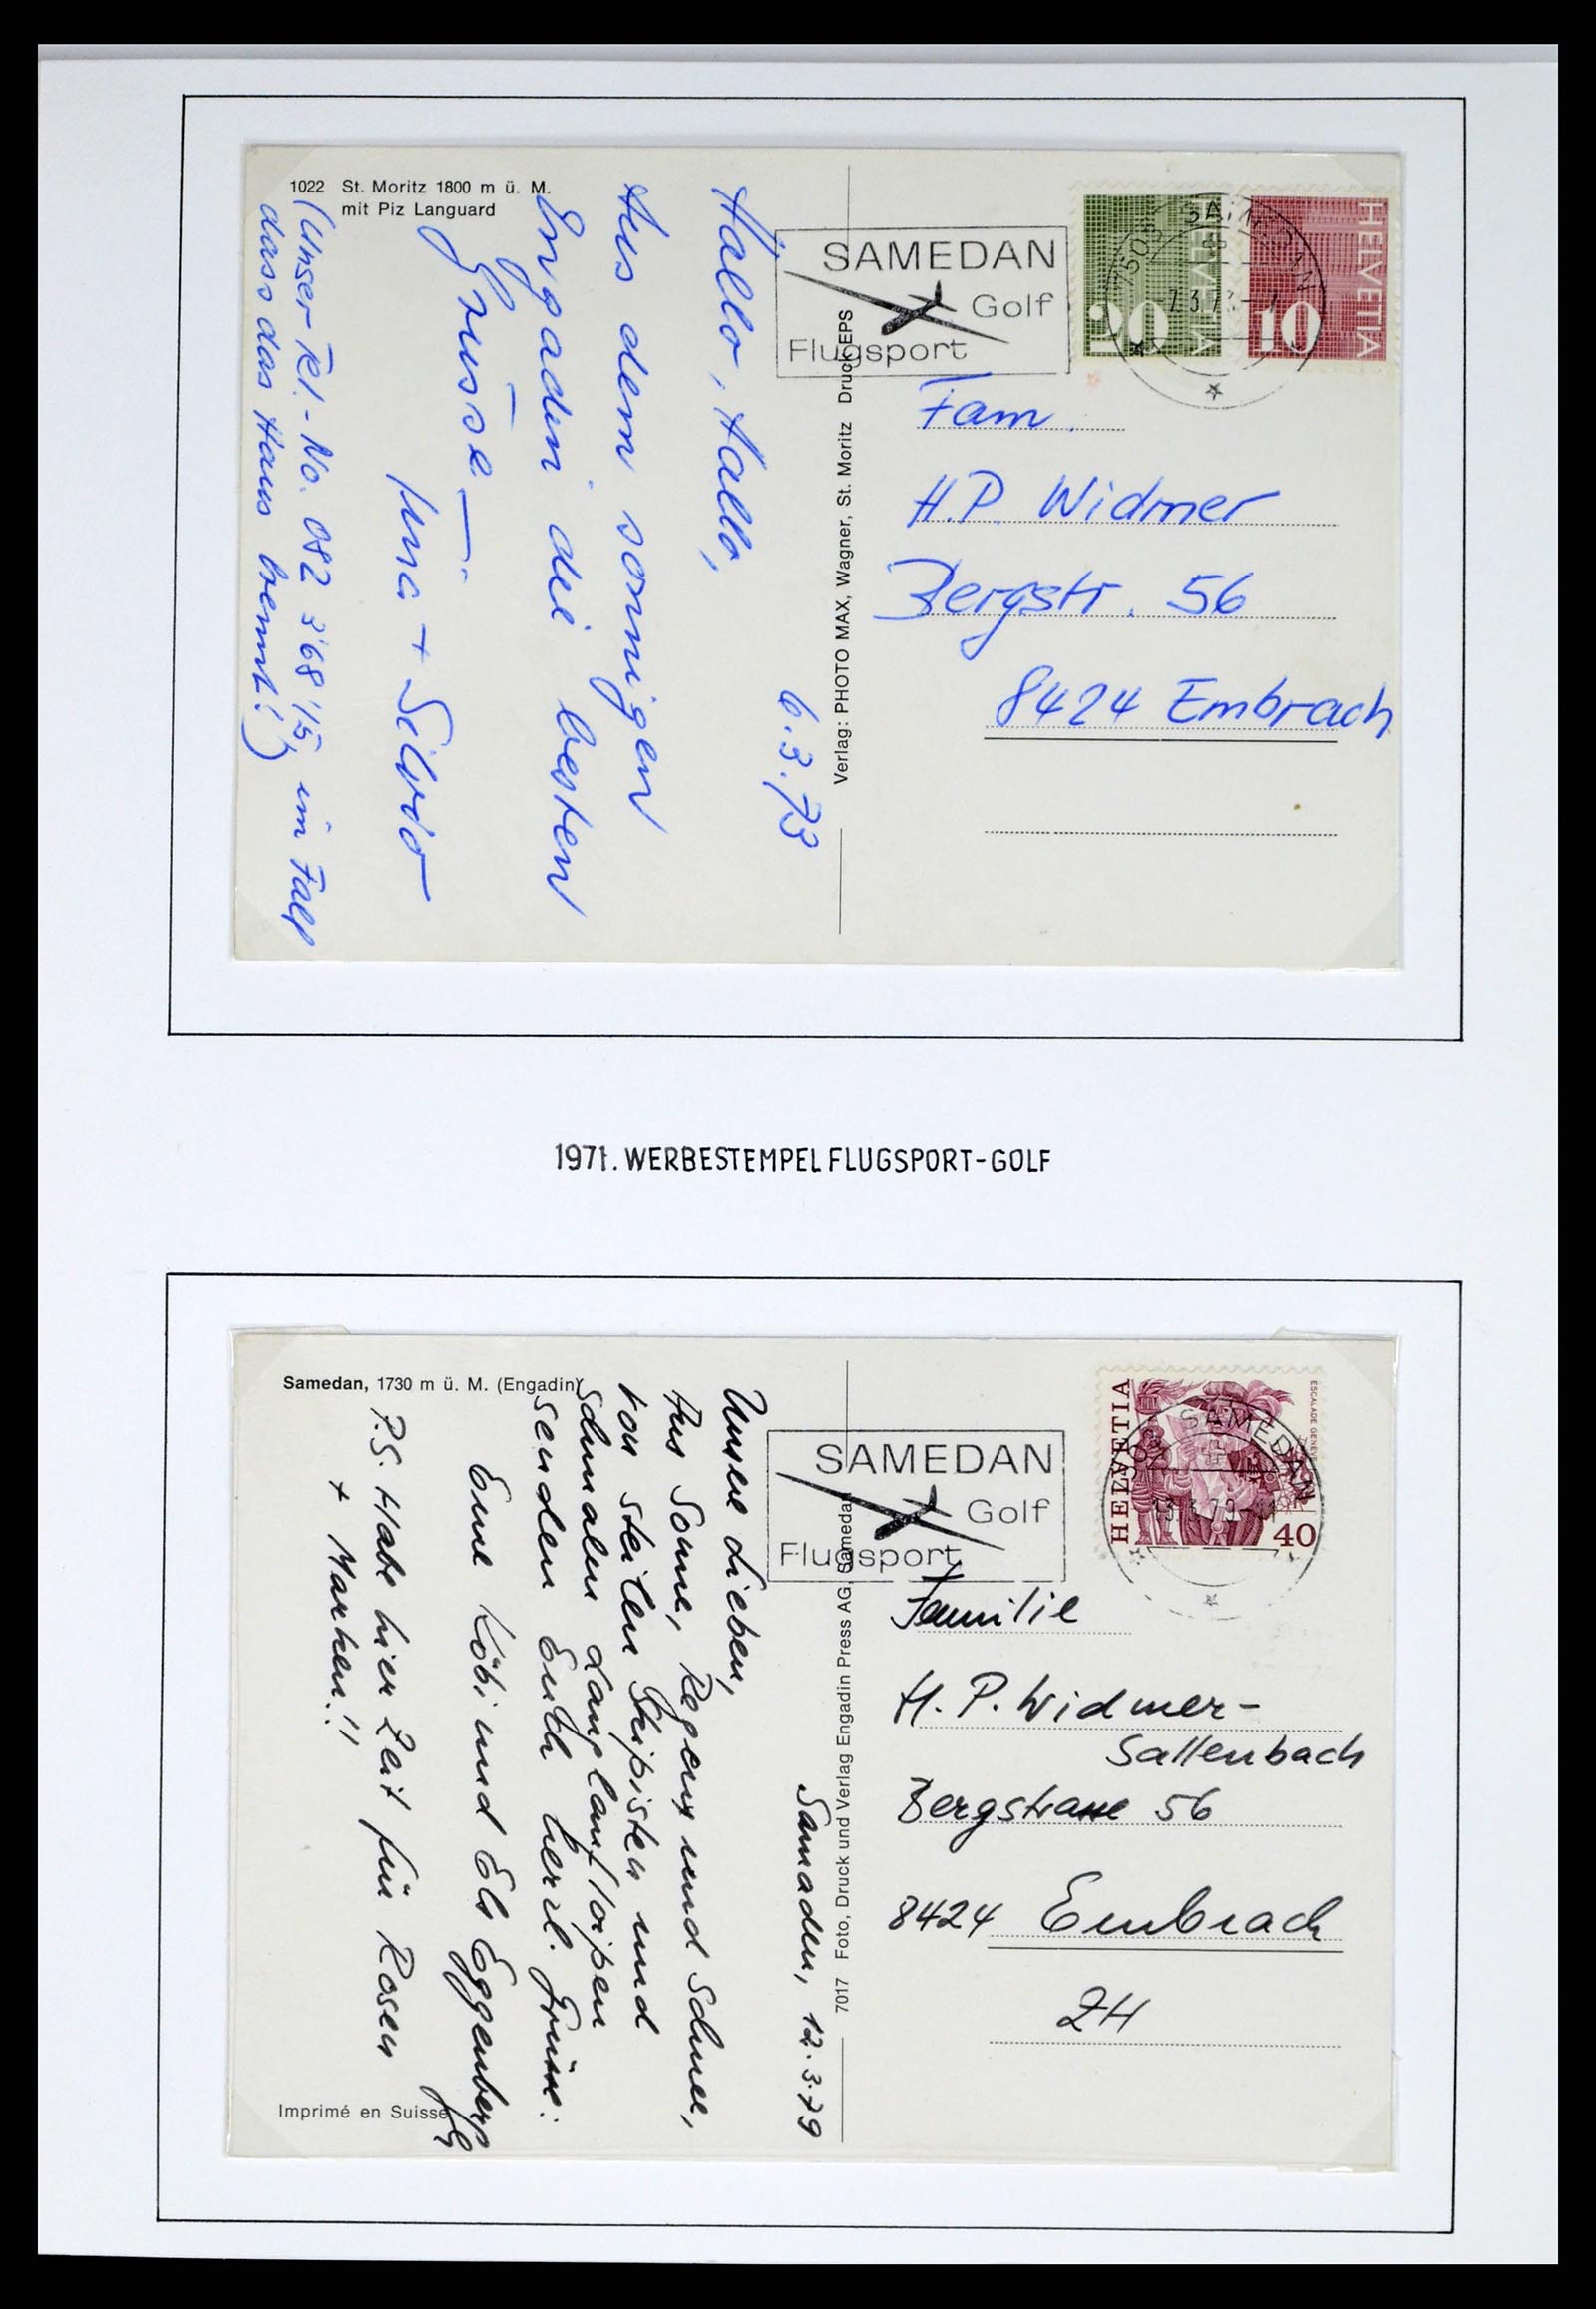 1022 St. Moritz 1800 m ü. M.
mit Piz Languard
6.3.73
Hallo, Hallo,
Aus dem sonnigen
Engadin die besten
Grüsse —
+ Silvio
(Unser Tel.-No. 082 3'68'15, im Fall
dass das Haus brennt!)
Verlag: PHOTO MAX, Wagner, St. Moritz Druck EPS
SAMEDAN
Golf
Flugsport
HELVETIA
20
HELVETIA
10
7503 SAMEDAN
7.3.73
Fam.
H.P. Widmer
Bergstr. 56
8424 Embrach
1971. WERBESTEMPEL FLUGSPORT-GOLF
Samedan, 1730 m ü. M. (Engadin)
Samaden, 12.3.79
Unsere Lieben,
Aus Sonne, Regen und Schnee,
von steilen Skipisten und
schmalen Langlaufloipen
senden Euch herzl. Grüsse:
Eure Köbi und Els Eggenberg
P.S. Habe hier Zeit für Rosen
+ Marken!!
Imprimé en Suisse
7017 Foto, Druck und Verlag Engadin Press AG, Samedan
SAMEDAN
Golf
Flugsport
HELVETIA
ESCALADE GENÈVE
40
SAMEDAN
13.3.79-11
Familie
H. P. Widmer-
Sallenbach
Bergstrasse 56
8424 Embrach
ZH